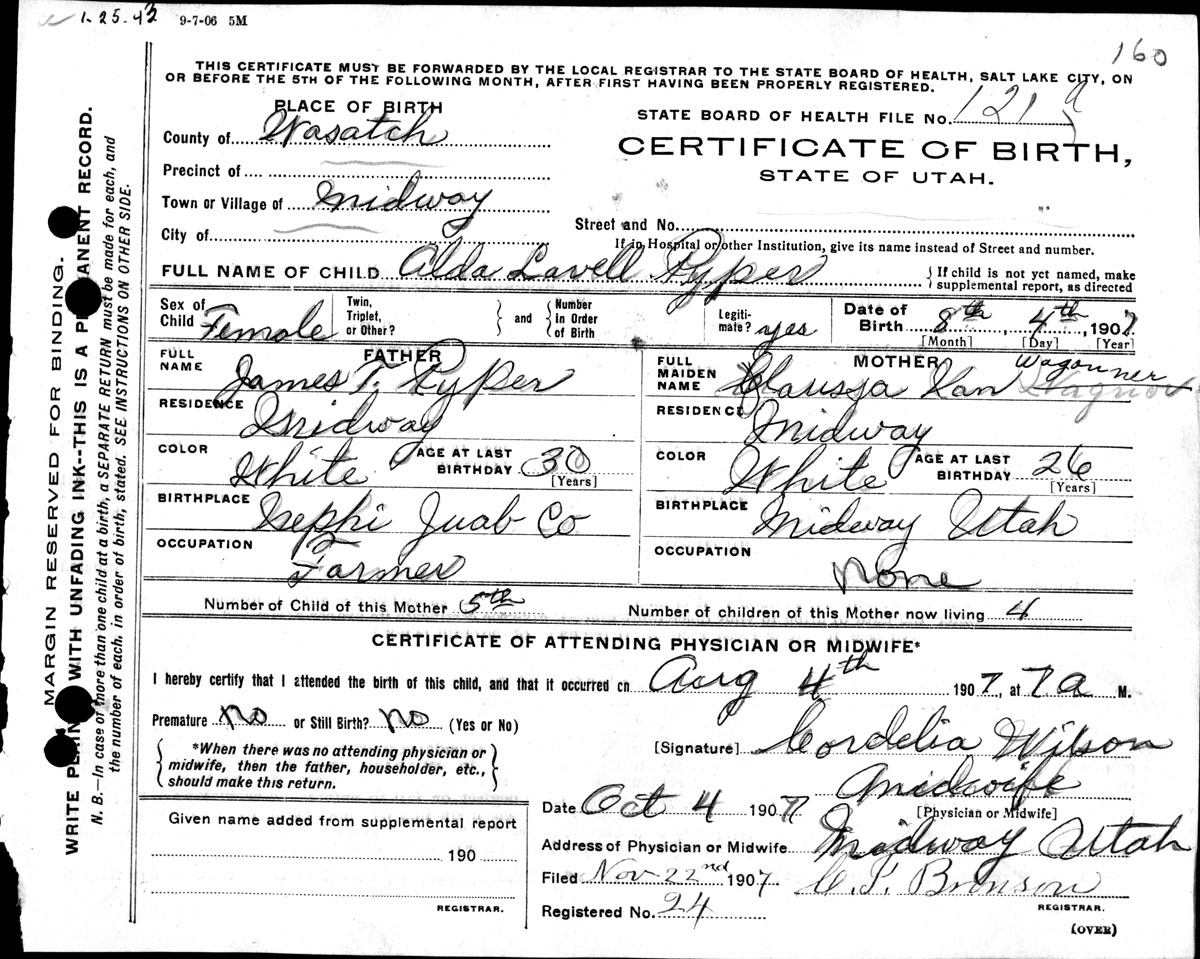 1.25.43 9-7-06 5M
160
THIS CERTIFICATE MUST BE FORWARDED BY THE LOCAL REGISTRAR TO THE STATE BOARD OF HEALTH, SALT LAKE CITY, ON
OR BEFORE THE 5TH OF THE FOLLOWING MONTH, AFTER FIRST HAVING BEEN PROPERLY REGISTERED.
PLACE OF BIRTH
STATE BOARD OF HEALTH FILE No. 121
County of Wasatch
CERTIFICATE OF BIRTH,
STATE OF UTAH.
Precinct of
Town or Village of Midway
Street and No.
City of
If in Hospital or other Institution, give its name instead of Street and number.
FULL NAME OF CHILD Alda Lavell Pyper
If child is not yet named, make
supplemental report, as directed
Sex of Child Female
Twin, Triplet, or Other? and Number in Order of Birth
Legiti-mate? yes
Date of Birth 8th, 4th, 1907
[Month] [Day] [Year]
FATHER
FULL NAME James T. Pyper
RESIDENCE Midway
COLOR White AGE AT LAST BIRTHDAY 30
[Years]
BIRTHPLACE Nephi Juab Co
OCCUPATION
Farmer
MOTHER
FULL MAIDEN NAME Clarissa Van Wagonner
RESIDENCE Midway
COLOR White AGE AT LAST BIRTHDAY 26
[Years]
BIRTHPLACE Midway Utah
OCCUPATION
none
Number of Child of this Mother 5th Number of children of this Mother now living 4
CERTIFICATE OF ATTENDING PHYSICIAN OR MIDWIFE*
I hereby certify that I attended the birth of this child, and that it occurred on Aug 4th 1907, at 7 a M.
Premature no or Still Birth? no (Yes or No)
*When there was no attending physician or
midwife, then the father, householder, etc.,
should make this return.
[Signature] Cordelia Wilson
Midwife
[Physician or Midwife]
Date Oct 4 1907
Address of Physician or Midwife Midway Utah
Filed Nov 22nd 1907 C. P. Bronson
REGISTRAR.
Registered No. 24
(OVER)
Given name added from supplemental report
190
REGISTRAR.
MARGIN RESERVED FOR BINDING.
WRITE PLAINLY WITH UNFADING INK--THIS IS A PERMANENT RECORD.
N. B.—In case of more than one child at birth, a SEPARATE RETURN must be made for each, and
the number of each, in order of birth, stated. SEE INSTRUCTIONS ON OTHER SIDE.